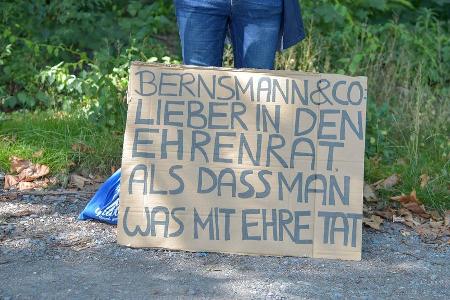 BERNSMANN&CO:
LIEBER IN DEN
EHRENRAT,
ALS DASS MAN
WAS MIT EHRE TAT